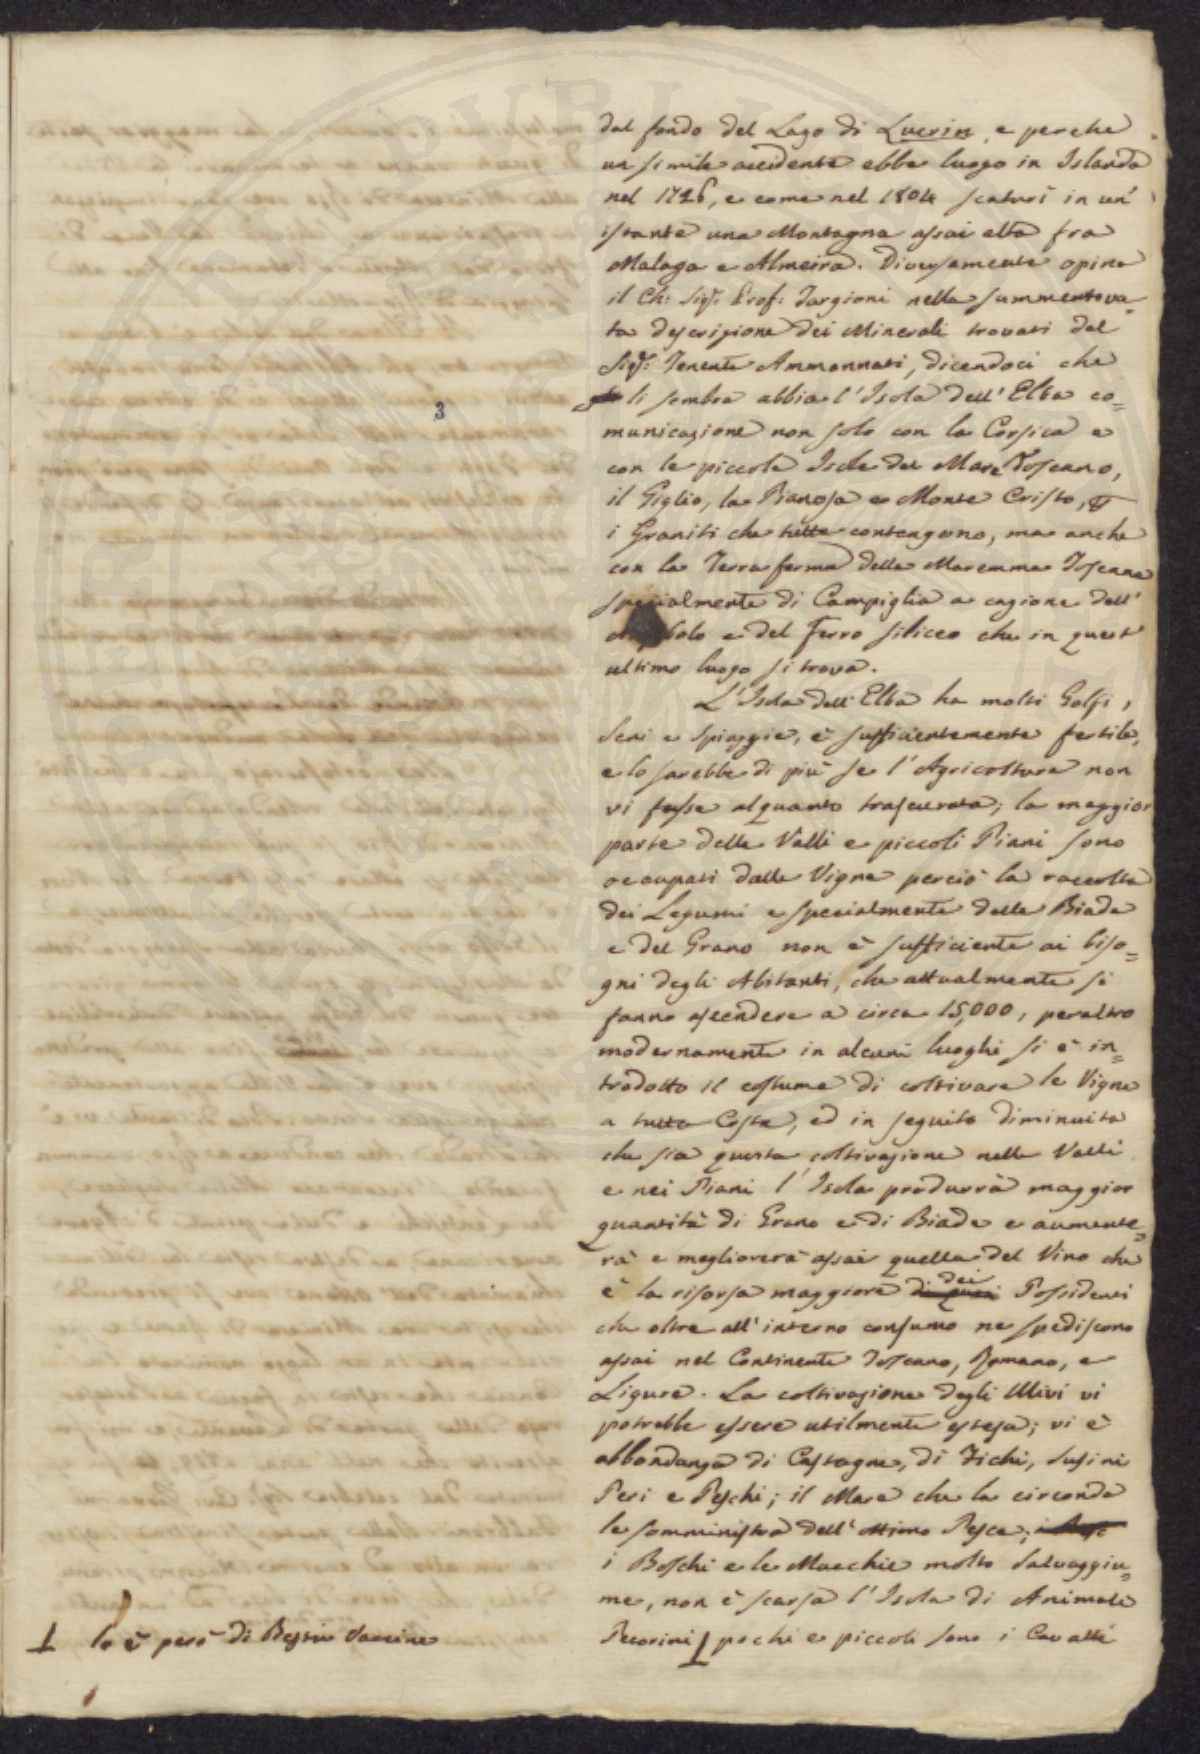 dal fondo del Lago di Lucrin, e perche
un simile accidente ebbe luogo in Islanda
nel 1726, e come nel 1804 scaturì in un'
istante una Montagna assai alta fra
Malaga e Almeira. Diversamente opina
il Ch: Sigr. Prof: Targioni nella summentova=
ta descrizione dei Minerali trovati dal
Sigr. Tenente Ammannati, dicendoci che
li sembra abbia l'Isola dell'Elba co=
municazione non solo con la Corsica e
con le piccole Isole del Mare Toscano,
il Giglio, la Pianosa e Monte Cristo,
i Graniti che tutte contengono, ma anche
con la Terra ferma della Maremma Toscana
specialmente di Campiglia a cagione dell'
e del Ferro siliceo che in quest'
ultimo luogo si trova.
L'Isola dell'Elba ha molti Golfi,
Seni e Spiaggie, è sufficientemente fertile,
e lo sarebbe di più se l'Agricoltura non
vi fosse alquanto trascurata; la maggior
parte delle Valli e piccoli Piani sono
occupati dalle Vigne perciò la raccolta
dei Legumi e specialmente delle Biade
e del Grano non è sufficiente ai biso=
gni degli Abitanti, che attualmente si
fanno ascendere a circa 15,000, peraltro
modernamente in alcuni luoghi si è in=
trodotto il costume di coltivare le Vigne
a tutta Costa, ed in seguito diminuita
che sia questa coltivazione nelle Valli
e nei Piani l'Isola produrrà maggior
quantità di Grano e di Biade e aumente=
rà e migliorerà assai quella del Vino che
è la risorsa maggiore dei Possidenti
che oltre all'interno consumo ne spediscono
assai nel Continente Toscano, Romano, e
Ligure. La coltivazione degli Ulivi vi
potrebbe essere utilmente estesa; vi è
abbondanza di Castagne, di Fichi, Susini
Peri e Peschi; il Mare che la circonda
le somministra dell'ottimo Pesce;
i Boschi e le Macchie molto Salvaggiu=
me, non è scarsa l'Isola di Animali
Pecorini ⊥ pochi e piccoli sono i Cavalli
⊥ lo è però di Bestie Vaccine
3